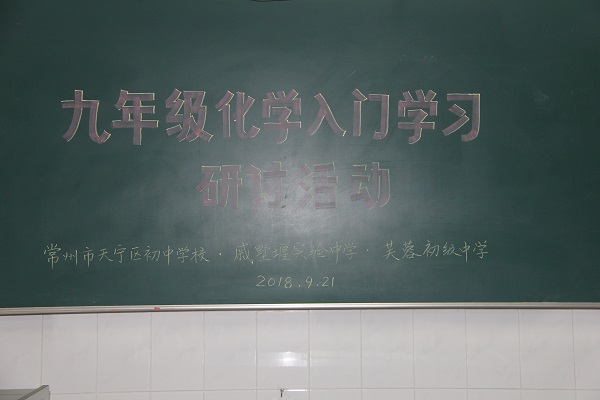 九年级化学入门学习
研讨活动
常州市天宁区初中学校·戚墅堰实验中学·芙蓉初级中学
2018.9.21